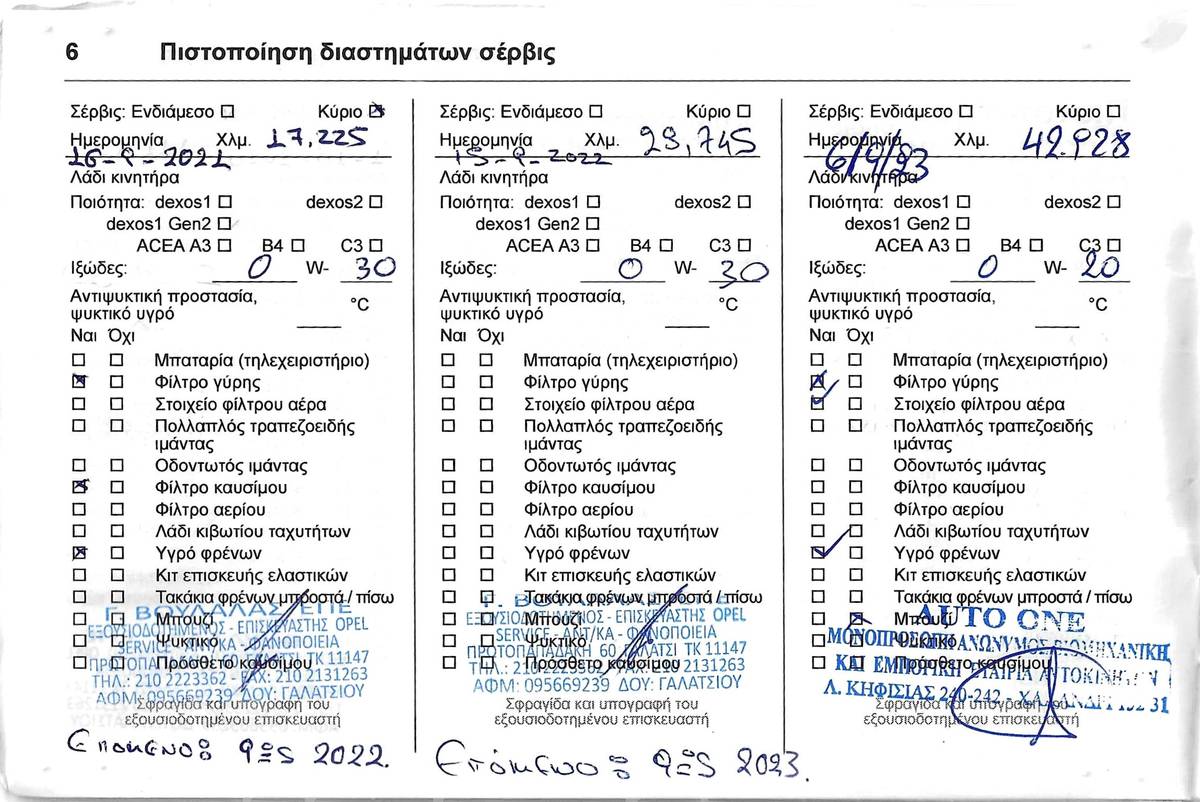 6 Πιστοποίηση διαστημάτων σέρβις
Σέρβις: Ενδιάμεσο ☐ Κύριο ☒
Ημερομηνία Χλμ. 17.225
16-9-2021
Λάδι κινητήρα
Ποιότητα: dexos1 ☐ dexos2 ☐
dexos1 Gen2 ☐
ACEA A3 ☐ B4 ☐ C3 ☐
Ιξώδες: 0 W- 30
Αντιψυκτική προστασία,
ψυκτικό υγρό °C
Ναι Όχι
☐ ☐ Μπαταρία (τηλεχειριστήριο)
☒ ☐ Φίλτρο γύρης
☐ ☐ Στοιχείο φίλτρου αέρα
☐ ☐ Πολλαπλός τραπεζοειδής
ιμάντας
☐ ☐ Οδοντωτός ιμάντας
☒ ☐ Φίλτρο καυσίμου
☐ ☐ Φίλτρο αερίου
☐ ☐ Λάδι κιβωτίου ταχυτήτων
☒ ☐ Υγρό φρένων
☐ ☐ Κιτ επισκευής ελαστικών
☐ ☐ Τακάκια φρένων μπροστά / πίσω
☐ ☐ Μπουζί
☐ ☐ Ψυκτικό
☐ ☐ Πρόσθετο καυσίμου
Γ. ΒΟΥΛΑΛΑΣ ΕΠΕ
ΕΞΟΥΣΙΟΔΟΤΗΜΕΝΟΣ - ΕΠΙΣΚΕΥΑΣΤΗΣ OPEL
SERVICE - ΑΝΤ/ΚΑ - ΦΑΝΟΠΟΙΕΙΑ
ΠΡΩΤΟΠΑΠΑΔΑΚΗ 60 ΓΑΛΑΤΣΙ ΤΚ 11147
ΤΗΛ.: 210 2223362 - FAX: 210 2131263
ΑΦΜ: 095669239 ΔΟΥ: ΓΑΛΑΤΣΙΟΥ
Σφραγίδα και υπογραφή του
εξουσιοδοτημένου επισκευαστή
Επόμενο: 9ος 2022.
Σέρβις: Ενδιάμεσο ☐ Κύριο ☐
Ημερομηνία Χλμ. 29,745
15-9-2022
Λάδι κινητήρα
Ποιότητα: dexos1 ☐ dexos2 ☐
dexos1 Gen2 ☐
ACEA A3 ☐ B4 ☐ C3 ☐
Ιξώδες: 0 W- 30
Αντιψυκτική προστασία,
ψυκτικό υγρό °C
Ναι Όχι
☐ ☐ Μπαταρία (τηλεχειριστήριο)
☐ ☐ Φίλτρο γύρης
☐ ☐ Στοιχείο φίλτρου αέρα
☐ ☐ Πολλαπλός τραπεζοειδής
ιμάντας
☐ ☐ Οδοντωτός ιμάντας
☐ ☐ Φίλτρο καυσίμου
☐ ☐ Φίλτρο αερίου
☐ ☐ Λάδι κιβωτίου ταχυτήτων
☐ ☐ Υγρό φρένων
☐ ☐ Κιτ επισκευής ελαστικών
☐ ☐ Τακάκια φρένων μπροστά / πίσω
☐ ☐ Μπουζί
☐ ☐ Ψυκτικό
☐ ☐ Πρόσθετο καυσίμου
Γ. ΒΟΥΛΑΛΑΣ ΕΠΕ
ΕΞΟΥΣΙΟΔΟΤΗΜΕΝΟΣ - ΕΠΙΣΚΕΥΑΣΤΗΣ OPEL
SERVICE - ΑΝΤ/ΚΑ - ΦΑΝΟΠΟΙΕΙΑ
ΠΡΩΤΟΠΑΠΑΔΑΚΗ 60 ΓΑΛΑΤΣΙ ΤΚ 11147
ΤΗΛ.: 210 2223362 - FAX: 210 2131263
ΑΦΜ: 095669239 ΔΟΥ: ΓΑΛΑΤΣΙΟΥ
Σφραγίδα και υπογραφή του
εξουσιοδοτημένου επισκευαστή
Επόμενο: 9ος 2023.
Σέρβις: Ενδιάμεσο ☐ Κύριο ☐
Ημερομηνία Χλμ. 42.928
6/9/23
Λάδι κινητήρα
Ποιότητα: dexos1 ☐ dexos2 ☐
dexos1 Gen2 ☐
ACEA A3 ☐ B4 ☐ C3 ☐
Ιξώδες: 0 W- 20
Αντιψυκτική προστασία,
ψυκτικό υγρό °C
Ναι Όχι
☐ ☐ Μπαταρία (τηλεχειριστήριο)
☒ ☐ Φίλτρο γύρης
☑ ☐ Στοιχείο φίλτρου αέρα
☐ ☐ Πολλαπλός τραπεζοειδής
ιμάντας
☐ ☐ Οδοντωτός ιμάντας
☐ ☐ Φίλτρο καυσίμου
☐ ☐ Φίλτρο αερίου
☐ ☐ Λάδι κιβωτίου ταχυτήτων
☑ ☐ Υγρό φρένων
☐ ☐ Κιτ επισκευής ελαστικών
☐ ☐ Τακάκια φρένων μπροστά / πίσω
☐ ☒ Μπουζί
☐ ☐ Ψυκτικό
☐ ☐ Πρόσθετο καυσίμου
AUTO ONE
ΜΟΝΟΠΡΟΣΩΠΗ ΑΝΩΝΥΜΟΣ ΒΙΟΜΗΧΑΝΙΚΗ
ΚΑΙ ΕΜΠΟΡΙΚΗ ΕΤΑΙΡΙΑ ΑΥΤΟΚΙΝΗΤΩΝ
Λ. ΚΗΦΙΣΙΑΣ 240-242 - ΧΑΛΑΝΔΡΙ 152 31
Σφραγίδα και υπογραφή του
εξουσιοδοτημένου επισκευαστή